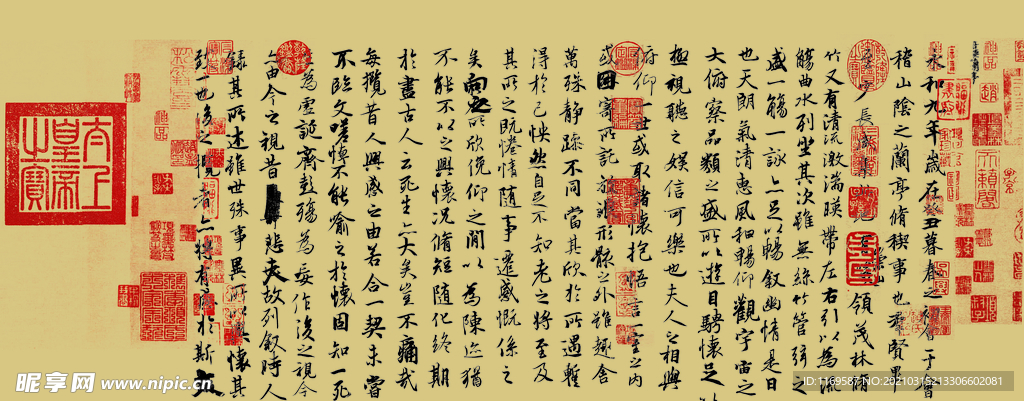 永和九年歲在癸丑暮春之初會于會
稽山陰之蘭亭脩禊事也羣賢畢
至少長咸集此地有峻領茂林脩
竹又有清流激湍暎帶左右引以為流
觴曲水列坐其次雖無絲竹管弦之
盛一觴一詠亦足以暢叙幽情是日
也天朗氣清惠風和暢仰觀宇宙之
大俯察品類之盛所以遊目騁懷足以
極視聽之娛信可樂也夫人之相與
俯仰一世或取諸懷抱悟言一室之内
或因寄所託放浪形骸之外雖趣舍
萬殊静躁不同當其欣於所遇暫
得於己怏然自足不知老之將至及
其所之既惓情隨事遷感慨係之
矣向之所欣俛仰之閒以為陳迹猶
不能不以之興懷況脩短隨化終期
於盡古人云死生亦大矣豈不痛哉
每攬昔人興感之由若合一契未嘗
不臨文嗟悼不能喻之於懷固知一死
生為虛誕齊彭殤為妄作後之視今
亦由今之視昔悲夫故列叙時人
錄其所述雖世殊事異所以興懷其
致一也後之攬者亦將有感於斯文
太上皇帝之寶
昵享网 www.nipic.cn
ID:1169587 NO:20210315213306602081